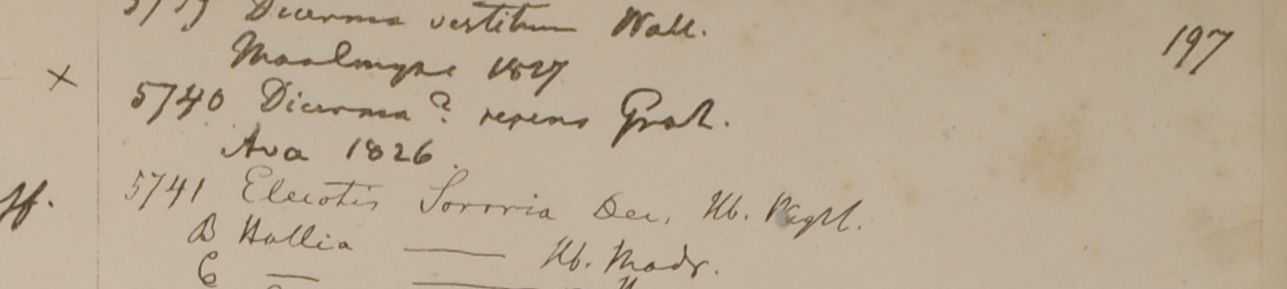 5739 Dicerma vestitum Wall.
197
Moalmyne 1827
× 5740 Dicerma? repens Grah.
Ava 1826
ff. 5741 Eleiotis Sororia Dec. Hb. Wight.
B Hallia — Hb. Madr.
C — —